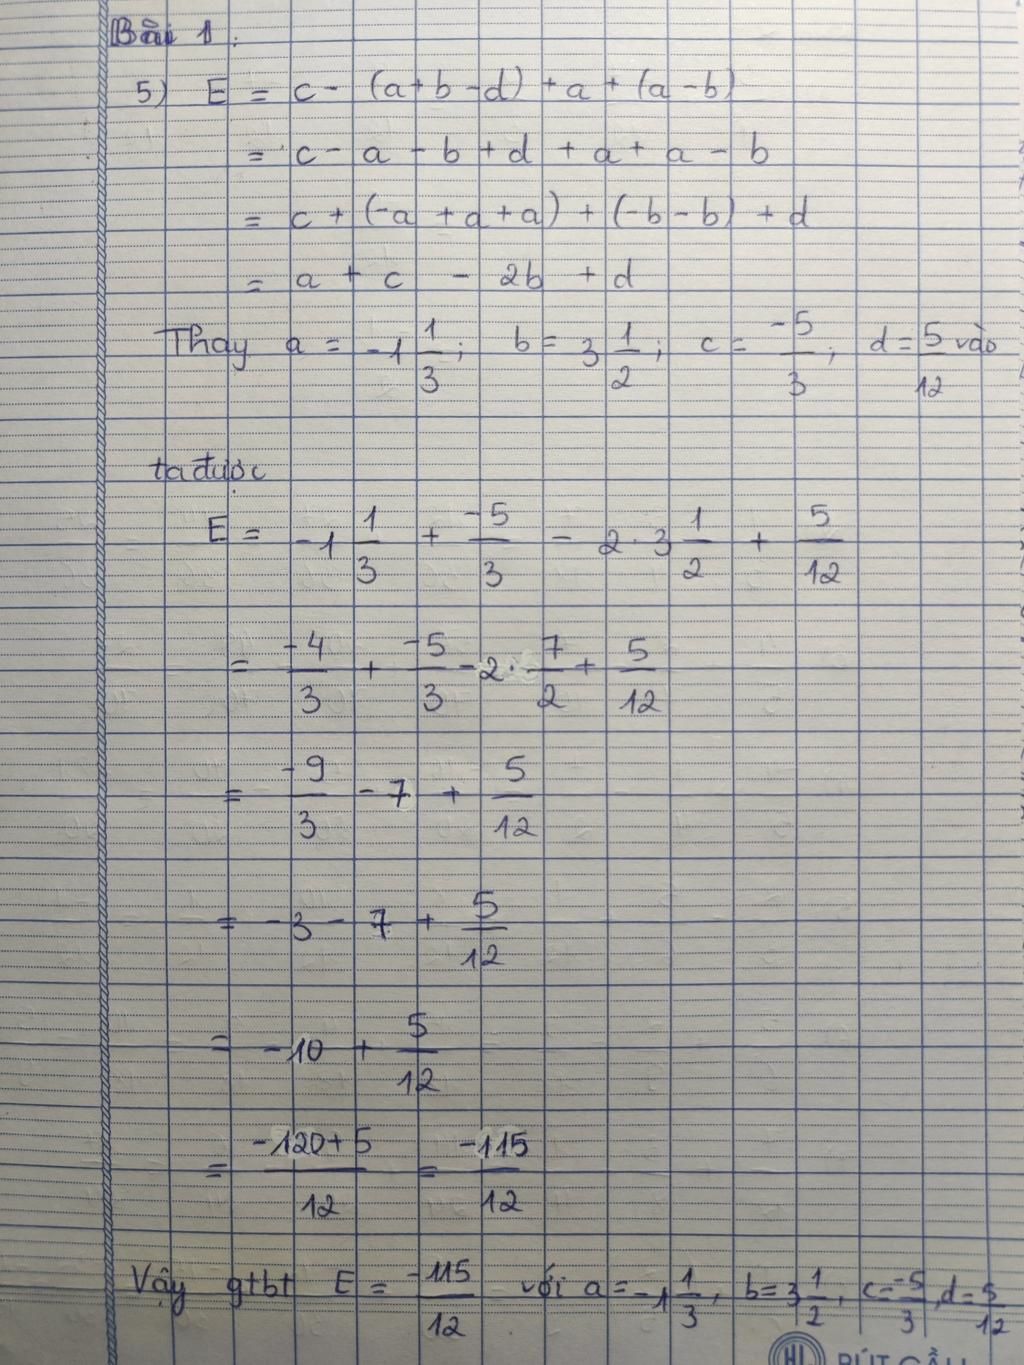 Bài 1:
5) E = c - (a+b-d) + a + (a-b)
= c - a - b + d + a + a - b
= c + (-a + a + a) + (-b - b) + d
= a + c - 2b + d
Thay a = -1 1/3; b = 3 1/2; c = -5/3; d = 5/12 vào
ta được
E = -1 1/3 + -5/3 - 2.3 1/2 + 5/12
= -4/3 + -5/3 - 2. 7/2 + 5/12
= -9/3 - 7 + 5/12
= -3 - 7 + 5/12
= -10 + 5/12
= -120+5/12 = -115/12
Vậy gtbt E = -115/12 với a = -1 1/3, b = 3 1/2, c = -5/3, d = 5/12
HL BÚT